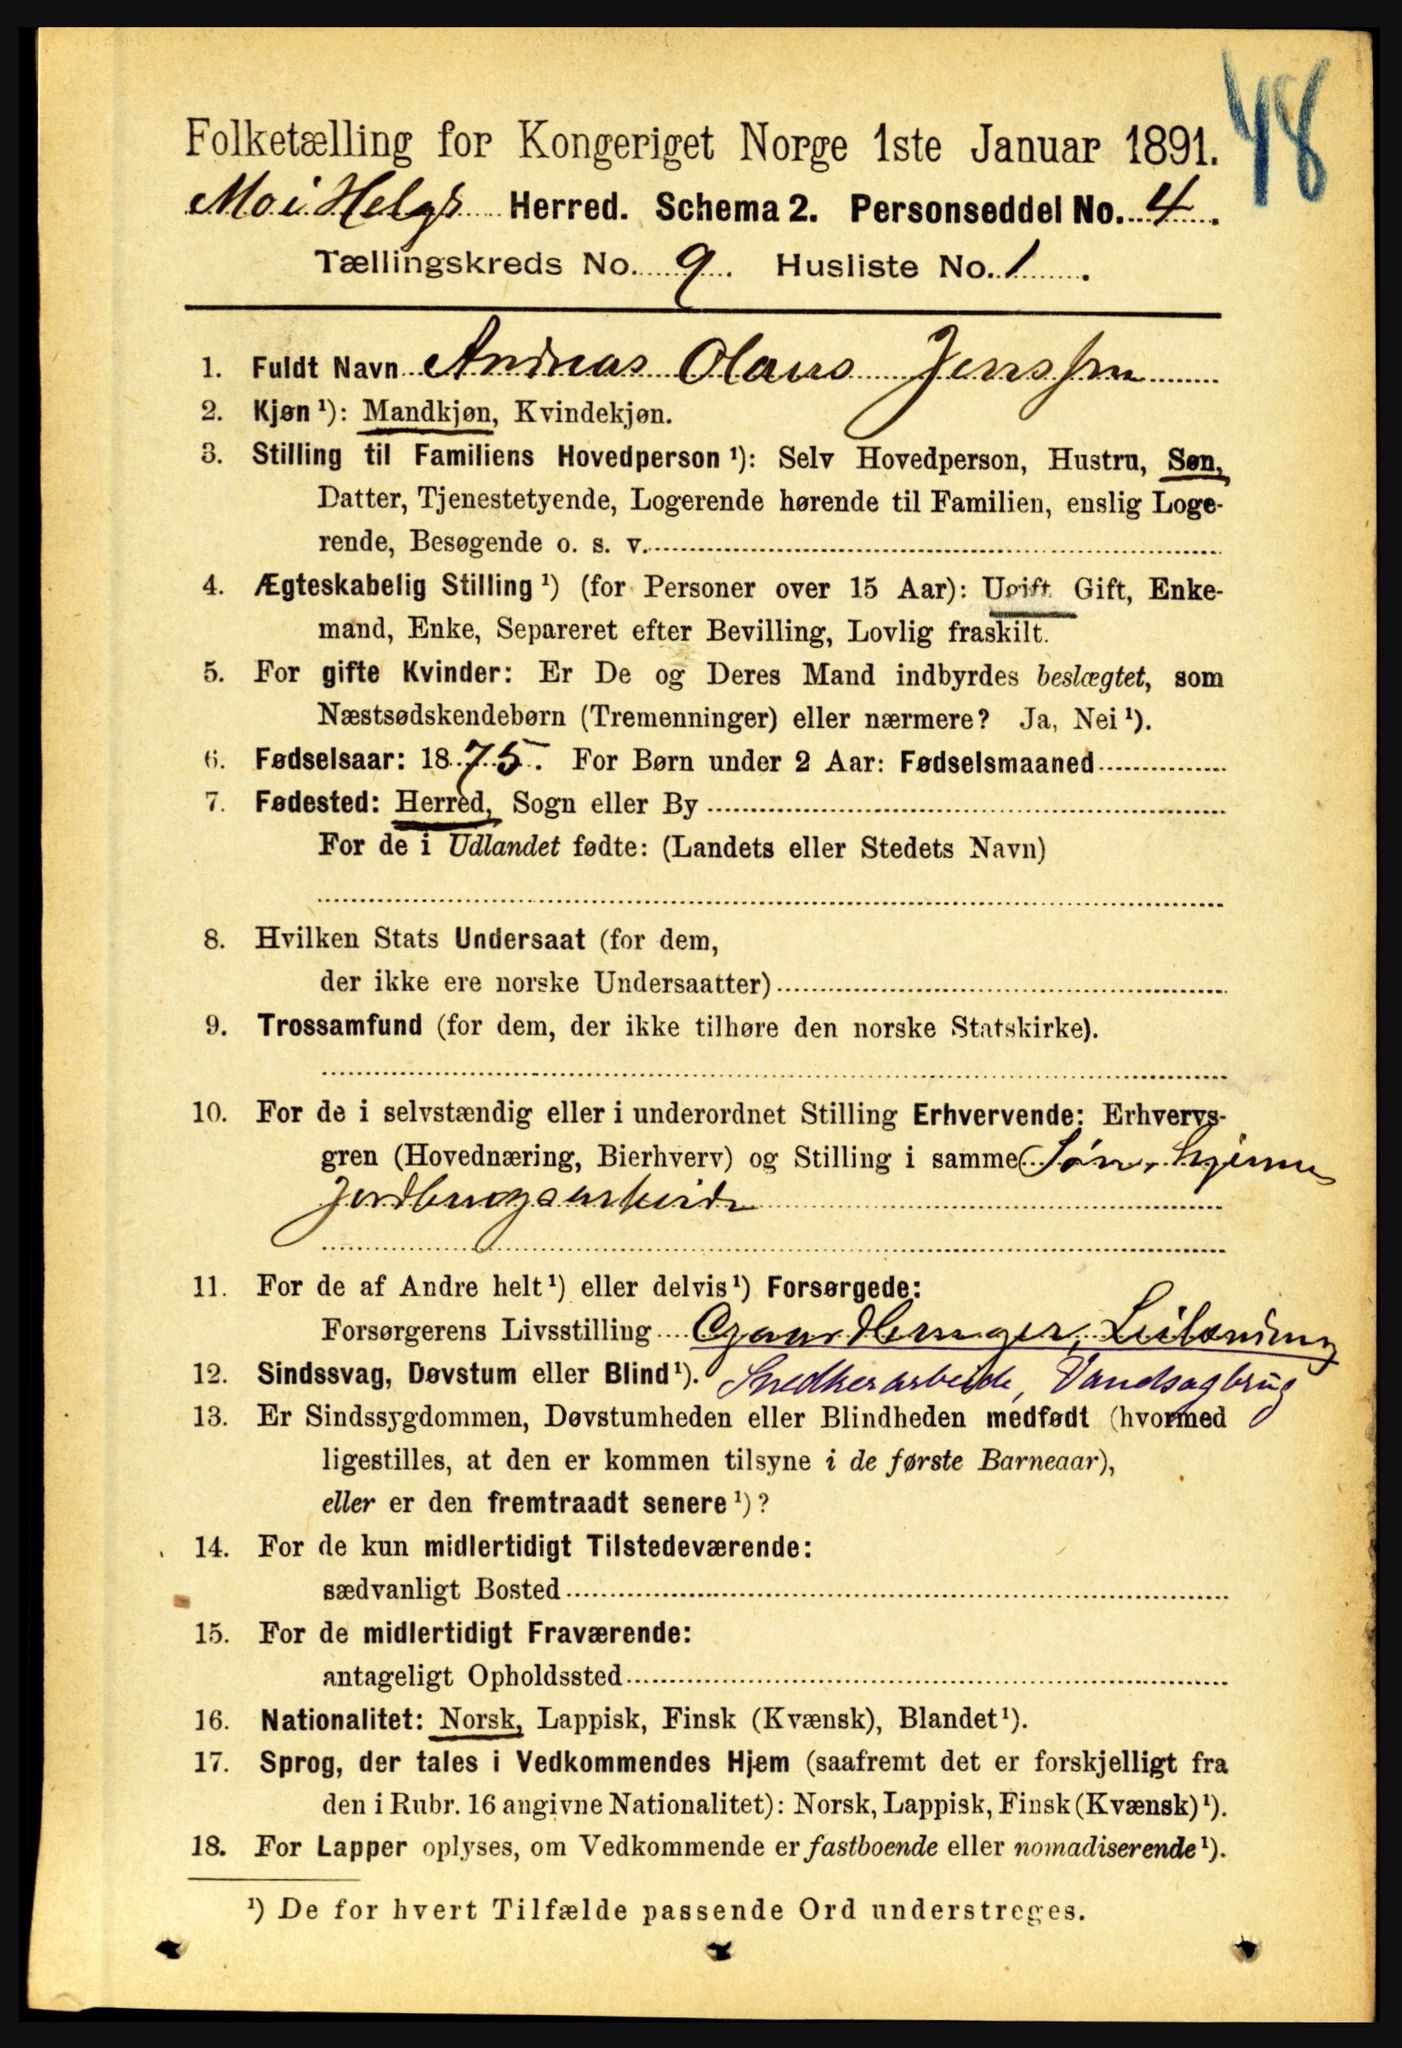 48
Folketælling for Kongeriget Norge 1ste Januar 1891.
Mo i Helgl Herred. Schema 2. Personseddel No. 4.
Tællingskreds No. 9. Husliste No. 1.
1. Fuldt Navn Andreas Olaus Jenssen
2. Kjøn ¹): Mandkjøn, Kvindekjøn.
3. Stilling til Familiens Hovedperson ¹): Selv Hovedperson, Hustru, Søn,
Datter, Tjenestetyende, Logerende hørende til Familien, enslig Loge-
rende, Besøgende o. s. v.
4. Ægteskabelig Stilling ¹) (for Personer over 15 Aar): Ugift Gift, Enke-
mand, Enke, Separeret efter Bevilling, Lovlig fraskilt.
5. For gifte Kvinder: Er De og Deres Mand indbyrdes beslægtet, som
Næstsødskendebørn (Tremenninger) eller nærmere? Ja, Nei ¹).
6. Fødselsaar: 1875. For Børn under 2 Aar: Fødselsmaaned
7. Fødested: Herred, Sogn eller By
For de i Udlandet fødte: (Landets eller Stedets Navn)
8. Hvilken Stats Undersaat (for dem,
der ikke ere norske Undersaatter)
9. Trossamfund (for dem, der ikke tilhøre den norske Statskirke).
10. For de i selvstændig eller i underordnet Stilling Erhvervende: Erhvervs-
gren (Hovednæring, Bierhverv) og Stilling i samme Søn, hjemme
Jordbrugsarbeide
11. For de af Andre helt ¹) eller delvis ¹) Forsørgede:
Forsørgerens Livsstilling Gaardbruger, Leilænding
12. Sindssvag, Døvstum eller Blind ¹). Snedkerarbeide, Vandsagbrug
13. Er Sindssygdommen, Døvstumheden eller Blindheden medfødt (hvormed
ligestilles, at den er kommen tilsyne i de første Barneaar),
eller er den fremtraadt senere ¹)?
14. For de kun midlertidigt Tilstedeværende:
sædvanligt Bosted
15. For de midlertidigt Fraværende:
antageligt Opholdssted
16. Nationalitet: Norsk, Lappisk, Finsk (Kvænsk), Blandet ¹).
17. Sprog, der tales i Vedkommendes Hjem (saafremt det er forskjelligt fra
den i Rubr. 16 angivne Nationalitet): Norsk, Lappisk, Finsk (Kvænsk) ¹).
18. For Lapper oplyses, om Vedkommende er fastboende eller nomadiserende ¹).
¹) De for hvert Tilfælde passende Ord understreges.